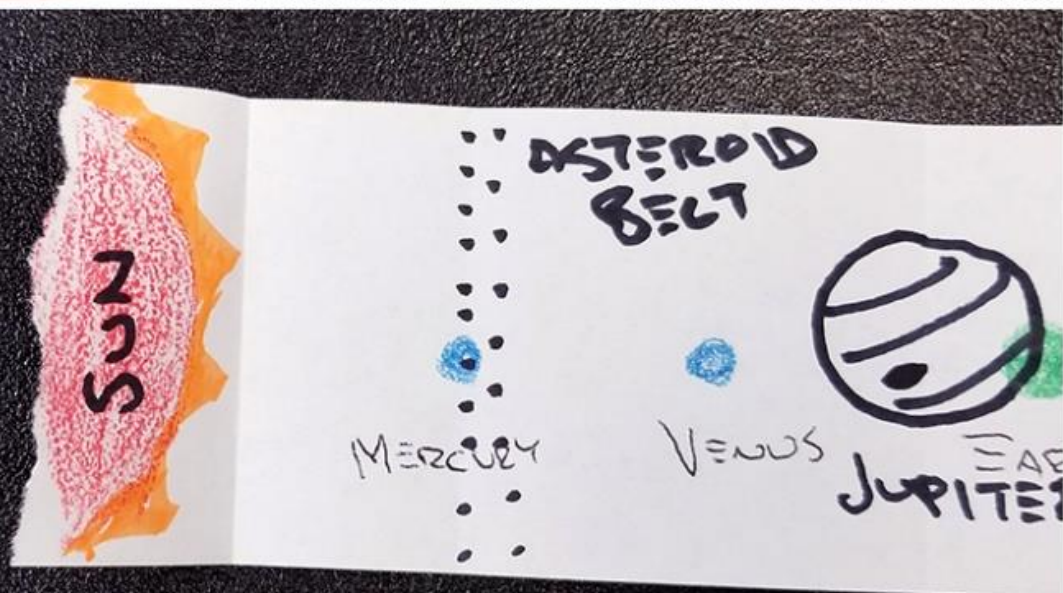 SUN
ASTEROID
BELT
MERCURY
VENUS
EA
JUPITE